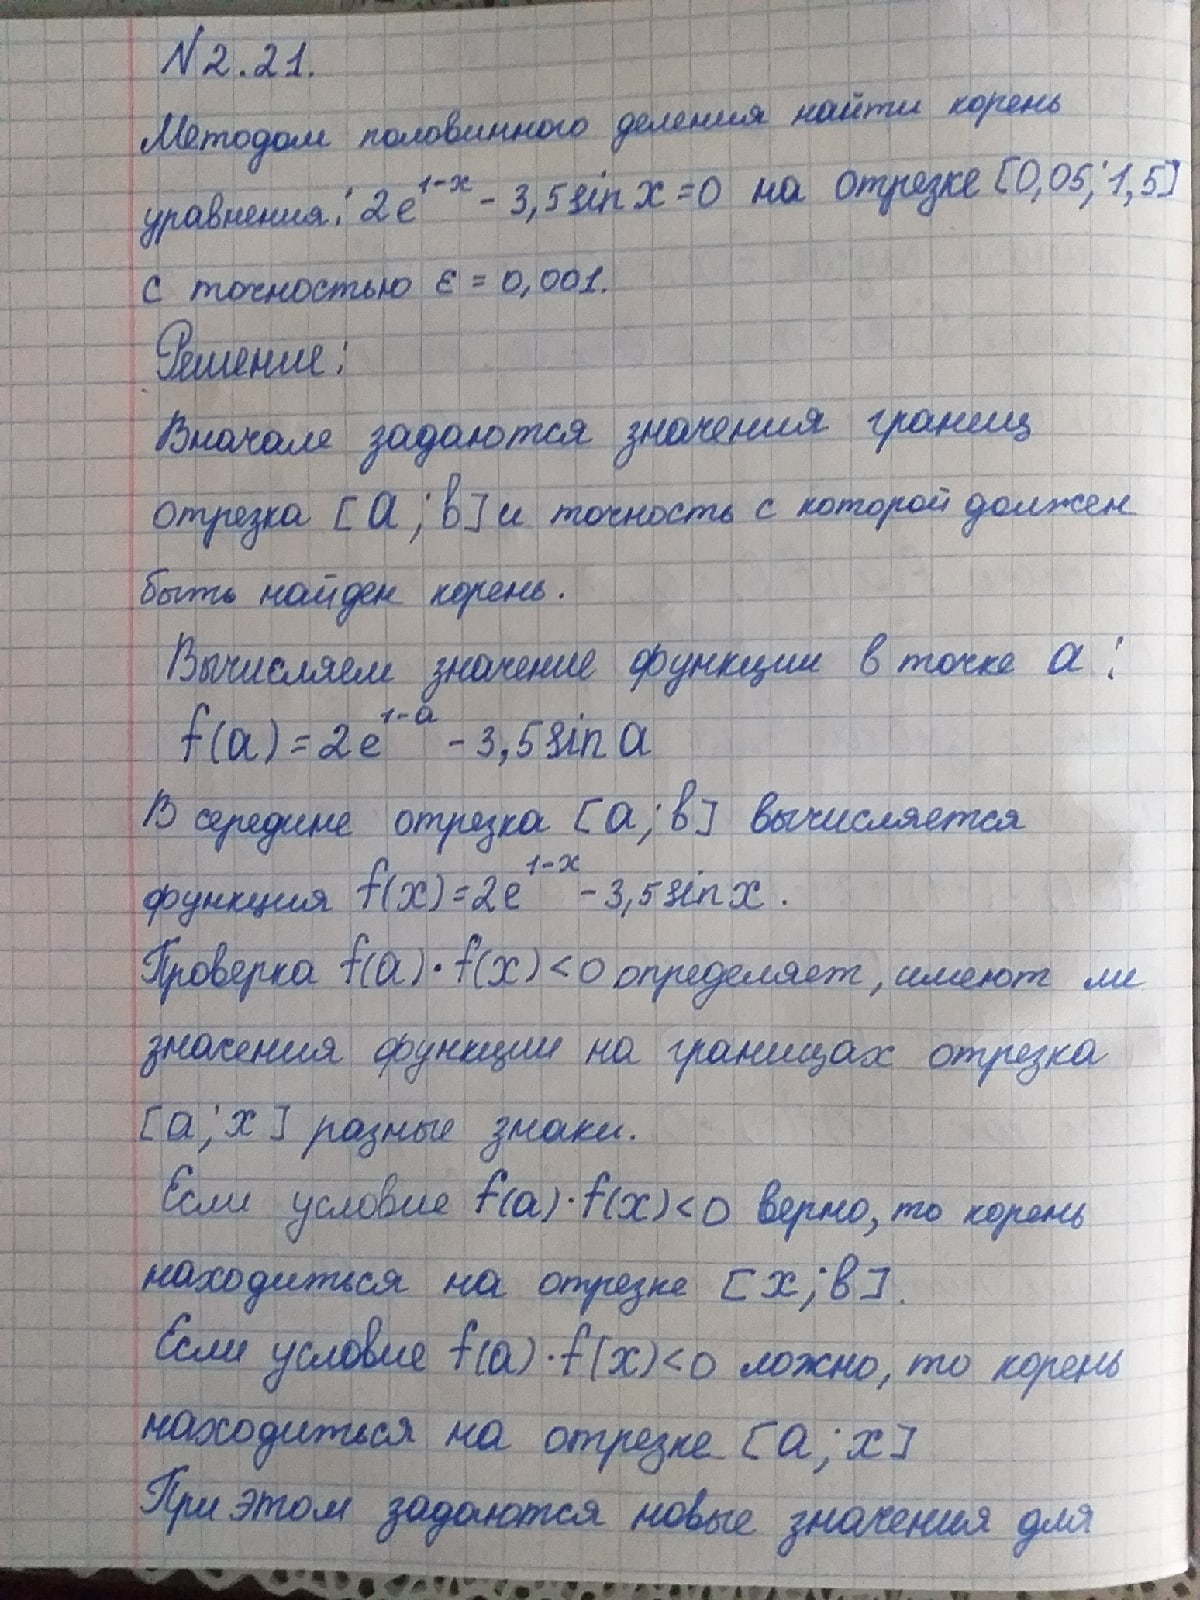 N 2.21.
Методом половинного деления найти корень
уравнения: 2e^{1-x} - 3,5 sin x = 0 на отрезке [0,05; 1,5]
с точностью ε = 0,001.
Решение:
Вначале задаются значения границ
отрезка [a; b] и точность с которой должен
быть найден корень.
Вычисляем значение функции в точке a:
f(a) = 2e^{1-a} - 3,5 sin a
В середине отрезка [a; b] вычисляется
функция f(x) = 2e^{1-x} - 3,5 sin x.
Проверка f(a)·f(x) < 0 определяет, имеют ли
значения функции на границах отрезка
[a; x] разные знаки.
Если условие f(a)·f(x) < 0 верно, то корень
находиться на отрезке [x; b].
Если условие f(a)·f(x) < 0 ложно, то корень
находиться на отрезке [a; x]
При этом задаются новые значения для